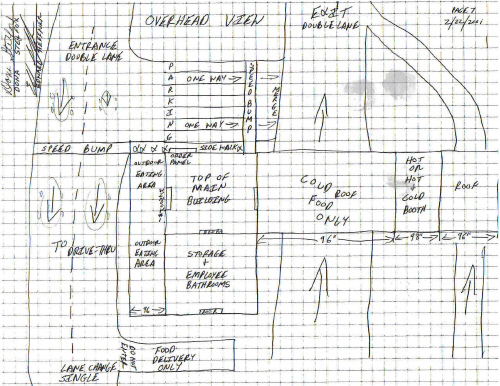 OVERHEAD VIEW
EXIT
DOUBLE LANE
PAGE 7
ENTRANCE
DOUBLE LANE
PARKING
ONE WAY →
SPEED BUMP
MERGE
ONE WAY →
SPEED BUMP
SIDEWALK
ORDER
PANEL
OUTDOOR
EATING
AREA
TOP OF
MAIN
BUILDING
COLD
FOOD
ONLY
ROOF
HOT
OR
HOT
+
COLD
BOOTH
ROOF
96"
98"
96"
TO
DRIVE-THRU
OUTDOOR
EATING
AREA
STORAGE
+
EMPLOYEE
BATHROOMS
96
DO NOT
ENTER
FOOD
DELIVERY
ONLY
LANE CHANGE
SINGLE